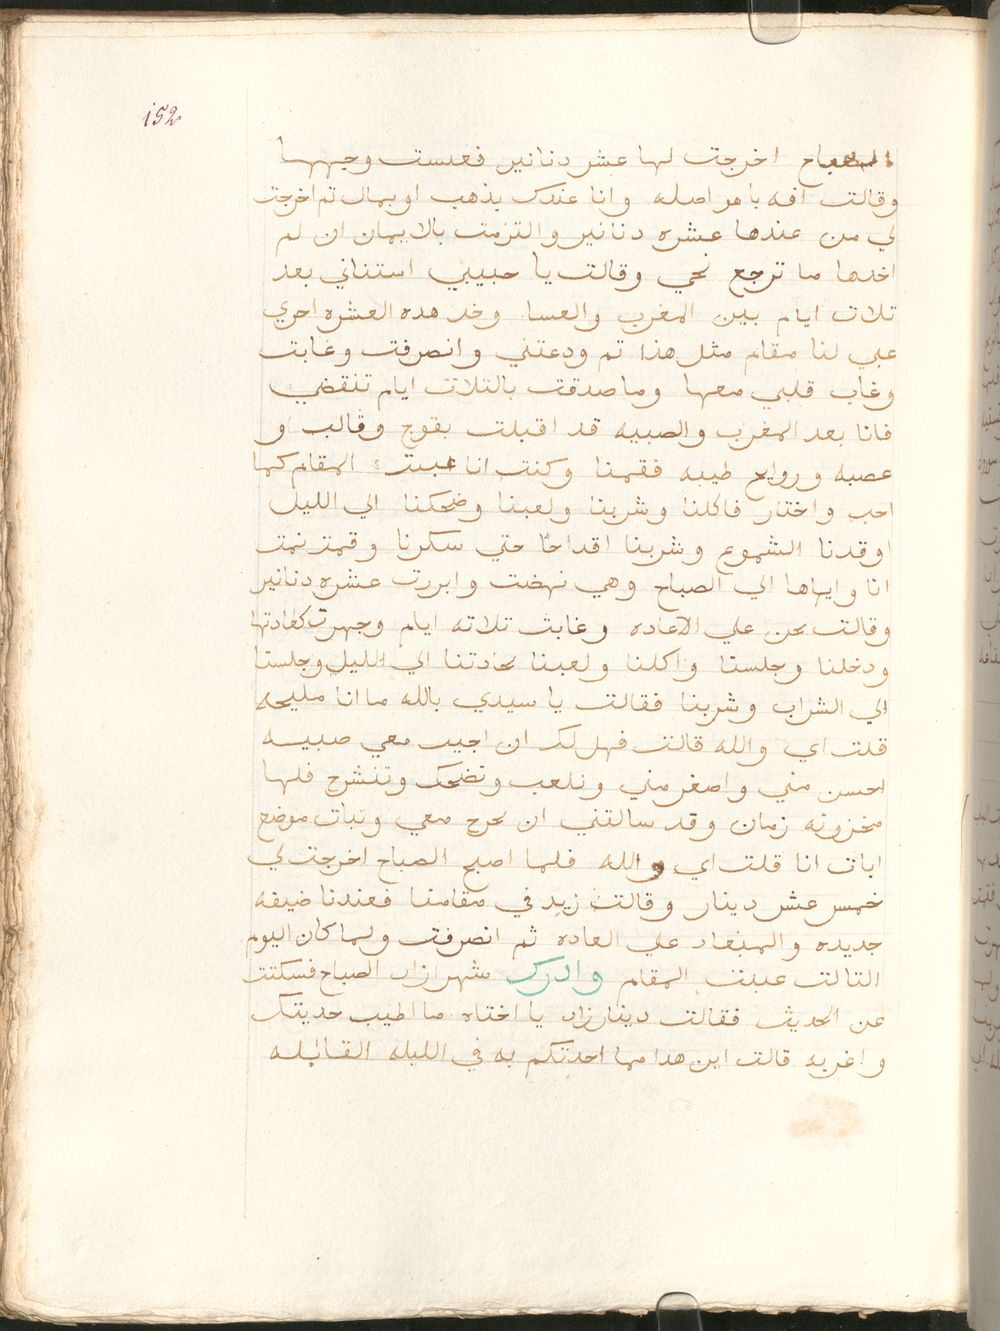 152
الصباح اخرجت لها عشر دنانير فعبست وجهها
وقالت افه ما هو اصله وانا عندك بذهب او بمال تم اخرجت
لي من عندها عشره دنانير والتزمت بالايمان ان لم
اخدها ما ترجع نجي وقالت يا حبيبي استناني بعد
تلات ايام بين المغرب والعسا وخد هده العشره احري
عبي لنا مقام مثل هذا تم ودعتني وانصرفت وغابت
وغاب قلبي معها وما صدقت بالتلات ايام تنقضي
فانا بعد المغرب والصبيه قد اقبلت بقوج وقالب و
عصبه وروايح طيبه فقمنا وكنت انا عبيت المقام كما
احب واختار فاكلنا وشربنا ولعبنا وضحكنا الي الليل
اوقدنا الشموع وشربنا اقداحا حتي سكرنا وقمت نمت
انا واياها الي الصباح وهي نهضت وابررت عشره دنانير
وقالت نحن علي الاعاده وغابت تلاته ايام وجهرت كعادتها
ودخلنا وجلسنا واكلنا ولعبنا بحادتنا الي الليل وجلسنا
الي الشراب وشربنا فقالت يا سيدي بالله ما انا مليحه
قلت اي والله قالت فهل لك ان اجيب معي صبيه
احسن مني واصغر مني ونلعب ونضحك وتنشرح فلها
مخزونه زمان وقد سالتني ان تخرج معي وتبات موضع
ابات انا قلت اي والله فلما اصبح الصباح اخرجت لي
خمس عشر دينار وقالت زيد في مقامنا فعندنا ضيفه
جديده والميعاد علي العاده ثم انصرفت ولما كان اليوم
التالت عبيت المقام وادرك شهرازاد الصباح فسكتت
عن الحديث فقالت دينارزاد يا اختاه ما اطيب حديتك
واغربه قالت اين هدا مما احدتكم به في الليله القابله